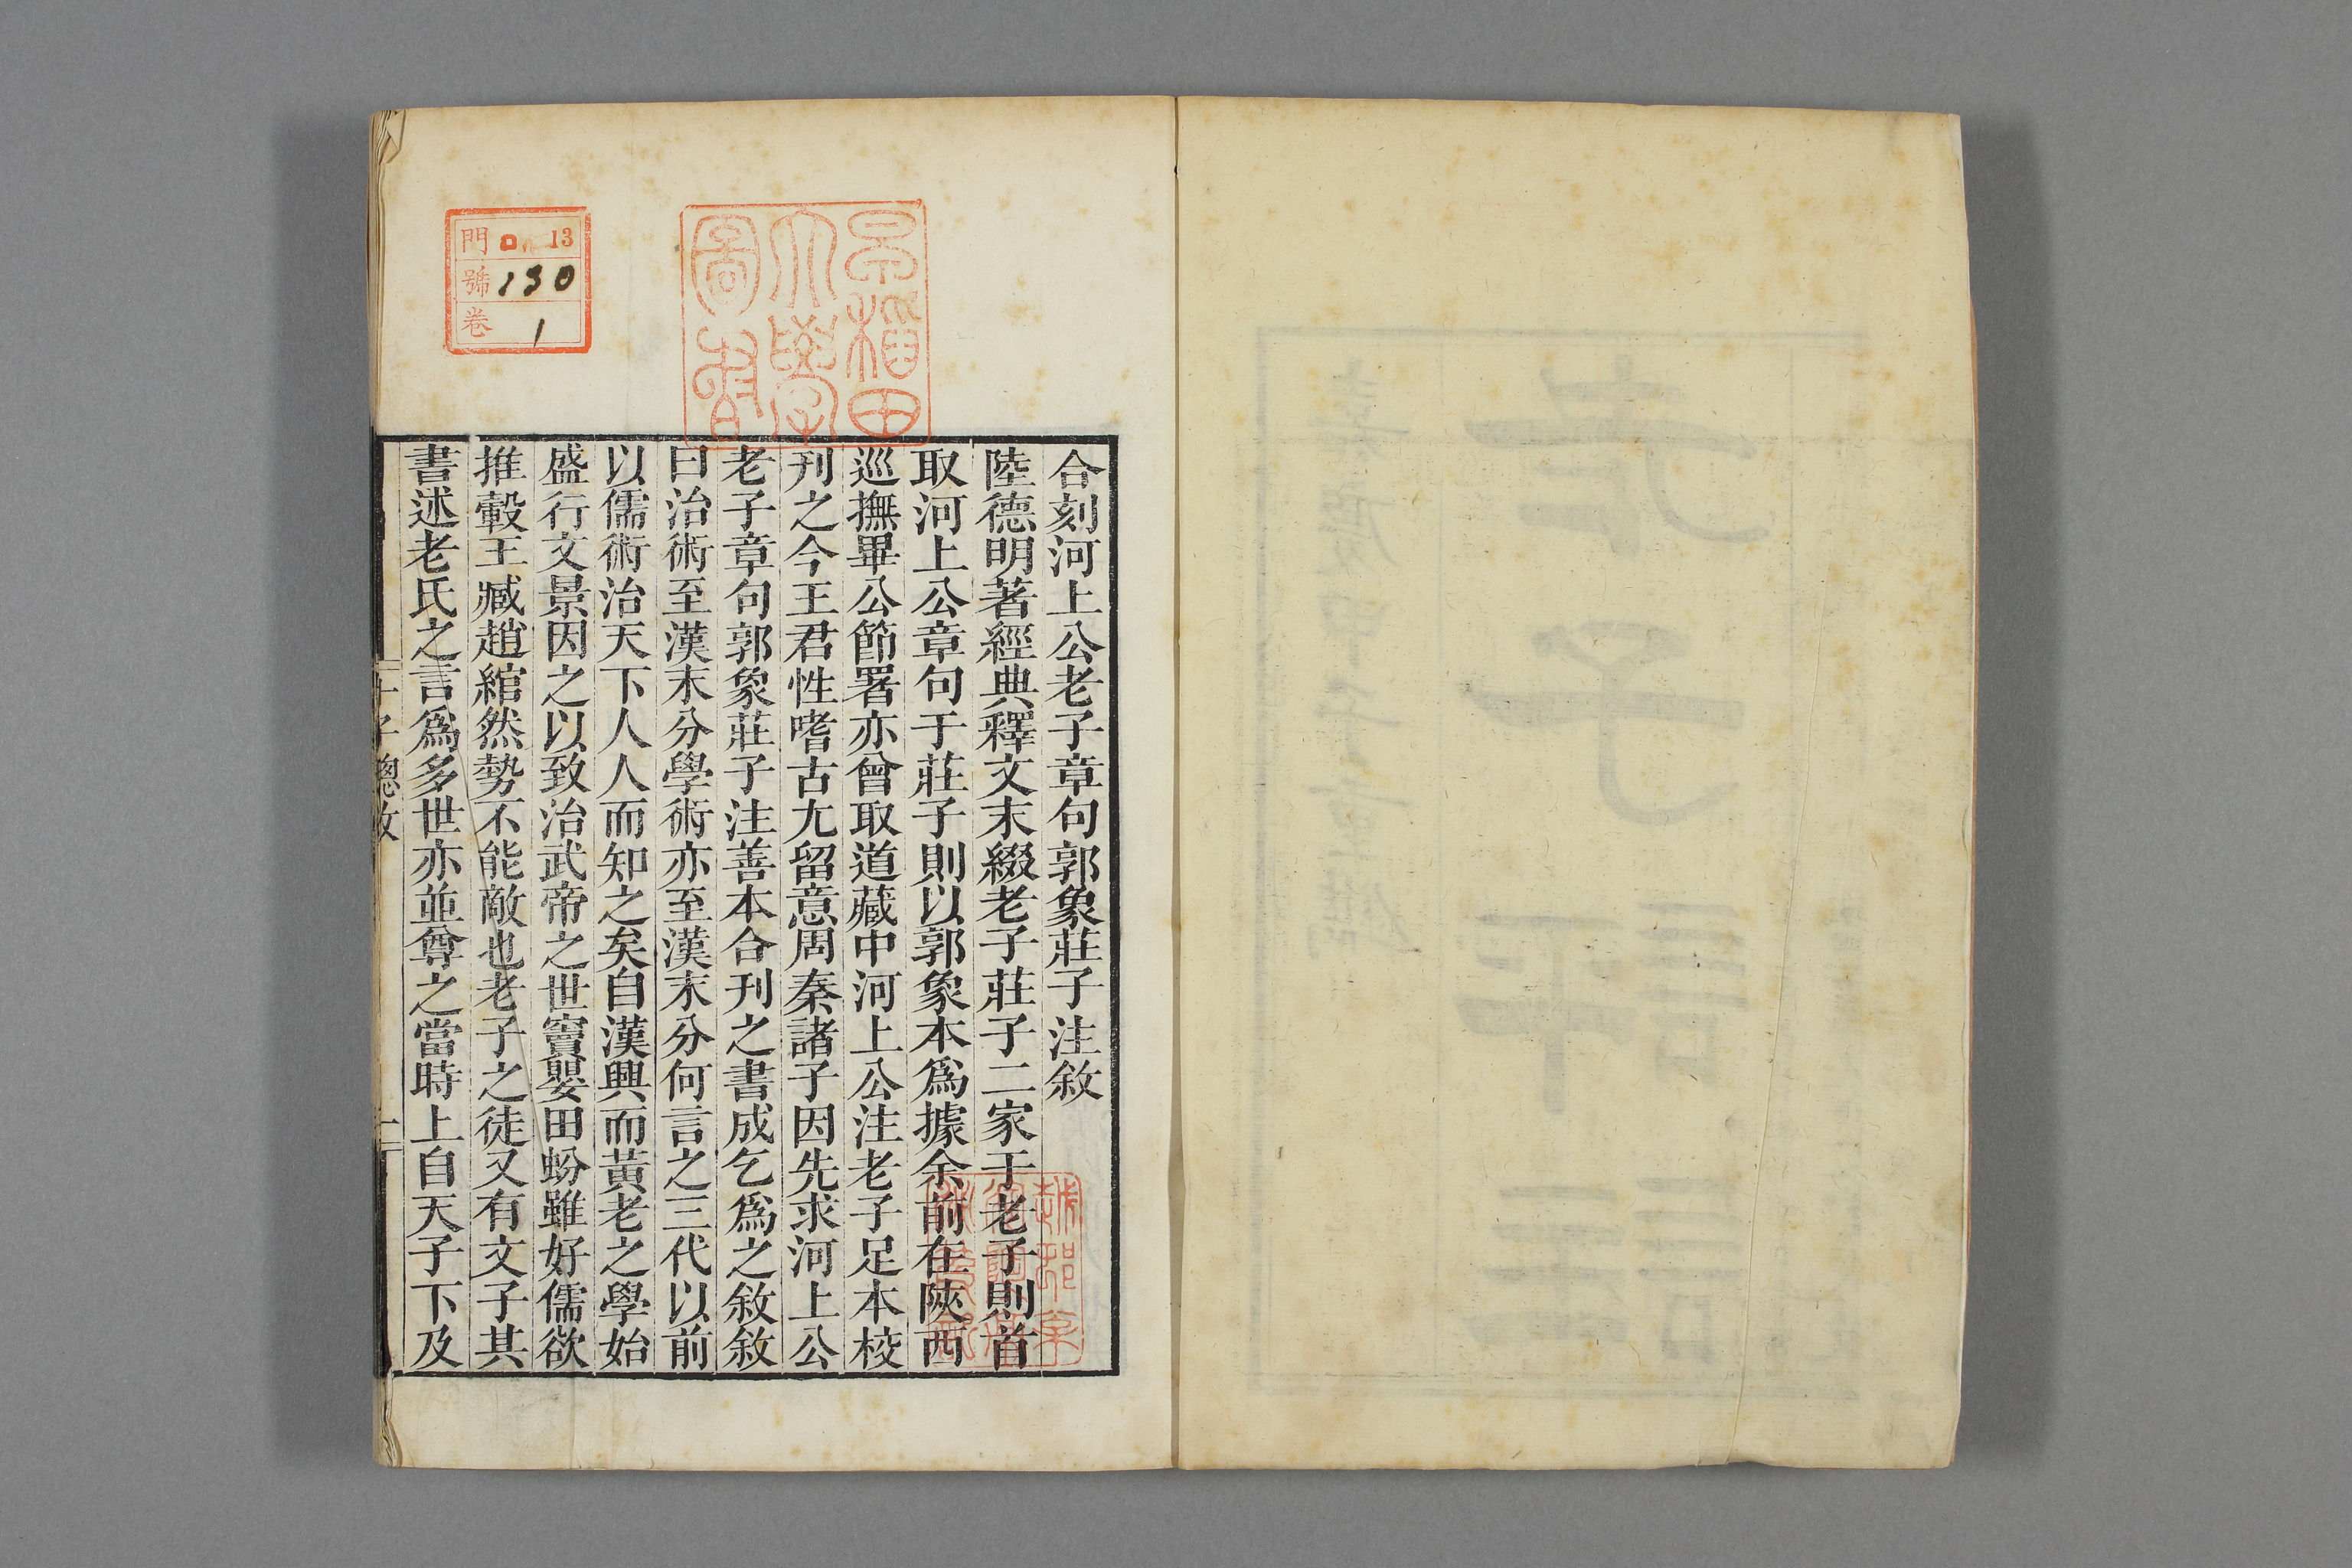 合刻河上公老子章句郭象莊子注敘
陸德明著經典釋文末綴老子莊子二家于老子則首
取河上公章句于莊子則以郭象本爲據余前在陝西
巡撫畢公節署亦曾取道藏中河上公注老子足本校
刊之今王君性嗜古尤留意周秦諸子因先求河上公
老子章句郭象莊子注善本合刊之書成乞爲之敘敘
曰治術至漢末分學術亦至漢末分何言之三代以前
以儒術治天下人人而知之矣自漢興而黃老之學始
盛行文景因之以致治武帝之世竇嬰田蚡雖好儒欲
推轂王臧趙綰然勢不能敵也老子之徒又有文子其
書述老氏之言爲多世亦並尊之當時上自天子下及
早稻田
大學
圖書
門 ロ 13
號 130
卷 1